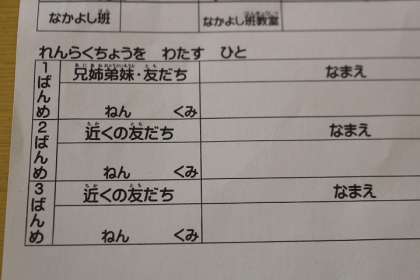 なかよし班 なかよし班教室
れんらくちょうを わたす ひと
1ばんめ 兄姉弟妹・友だち なまえ
ねん くみ
2ばんめ 近くの友だち なまえ
ねん くみ
3ばんめ 近くの友だち なまえ
ねん くみ